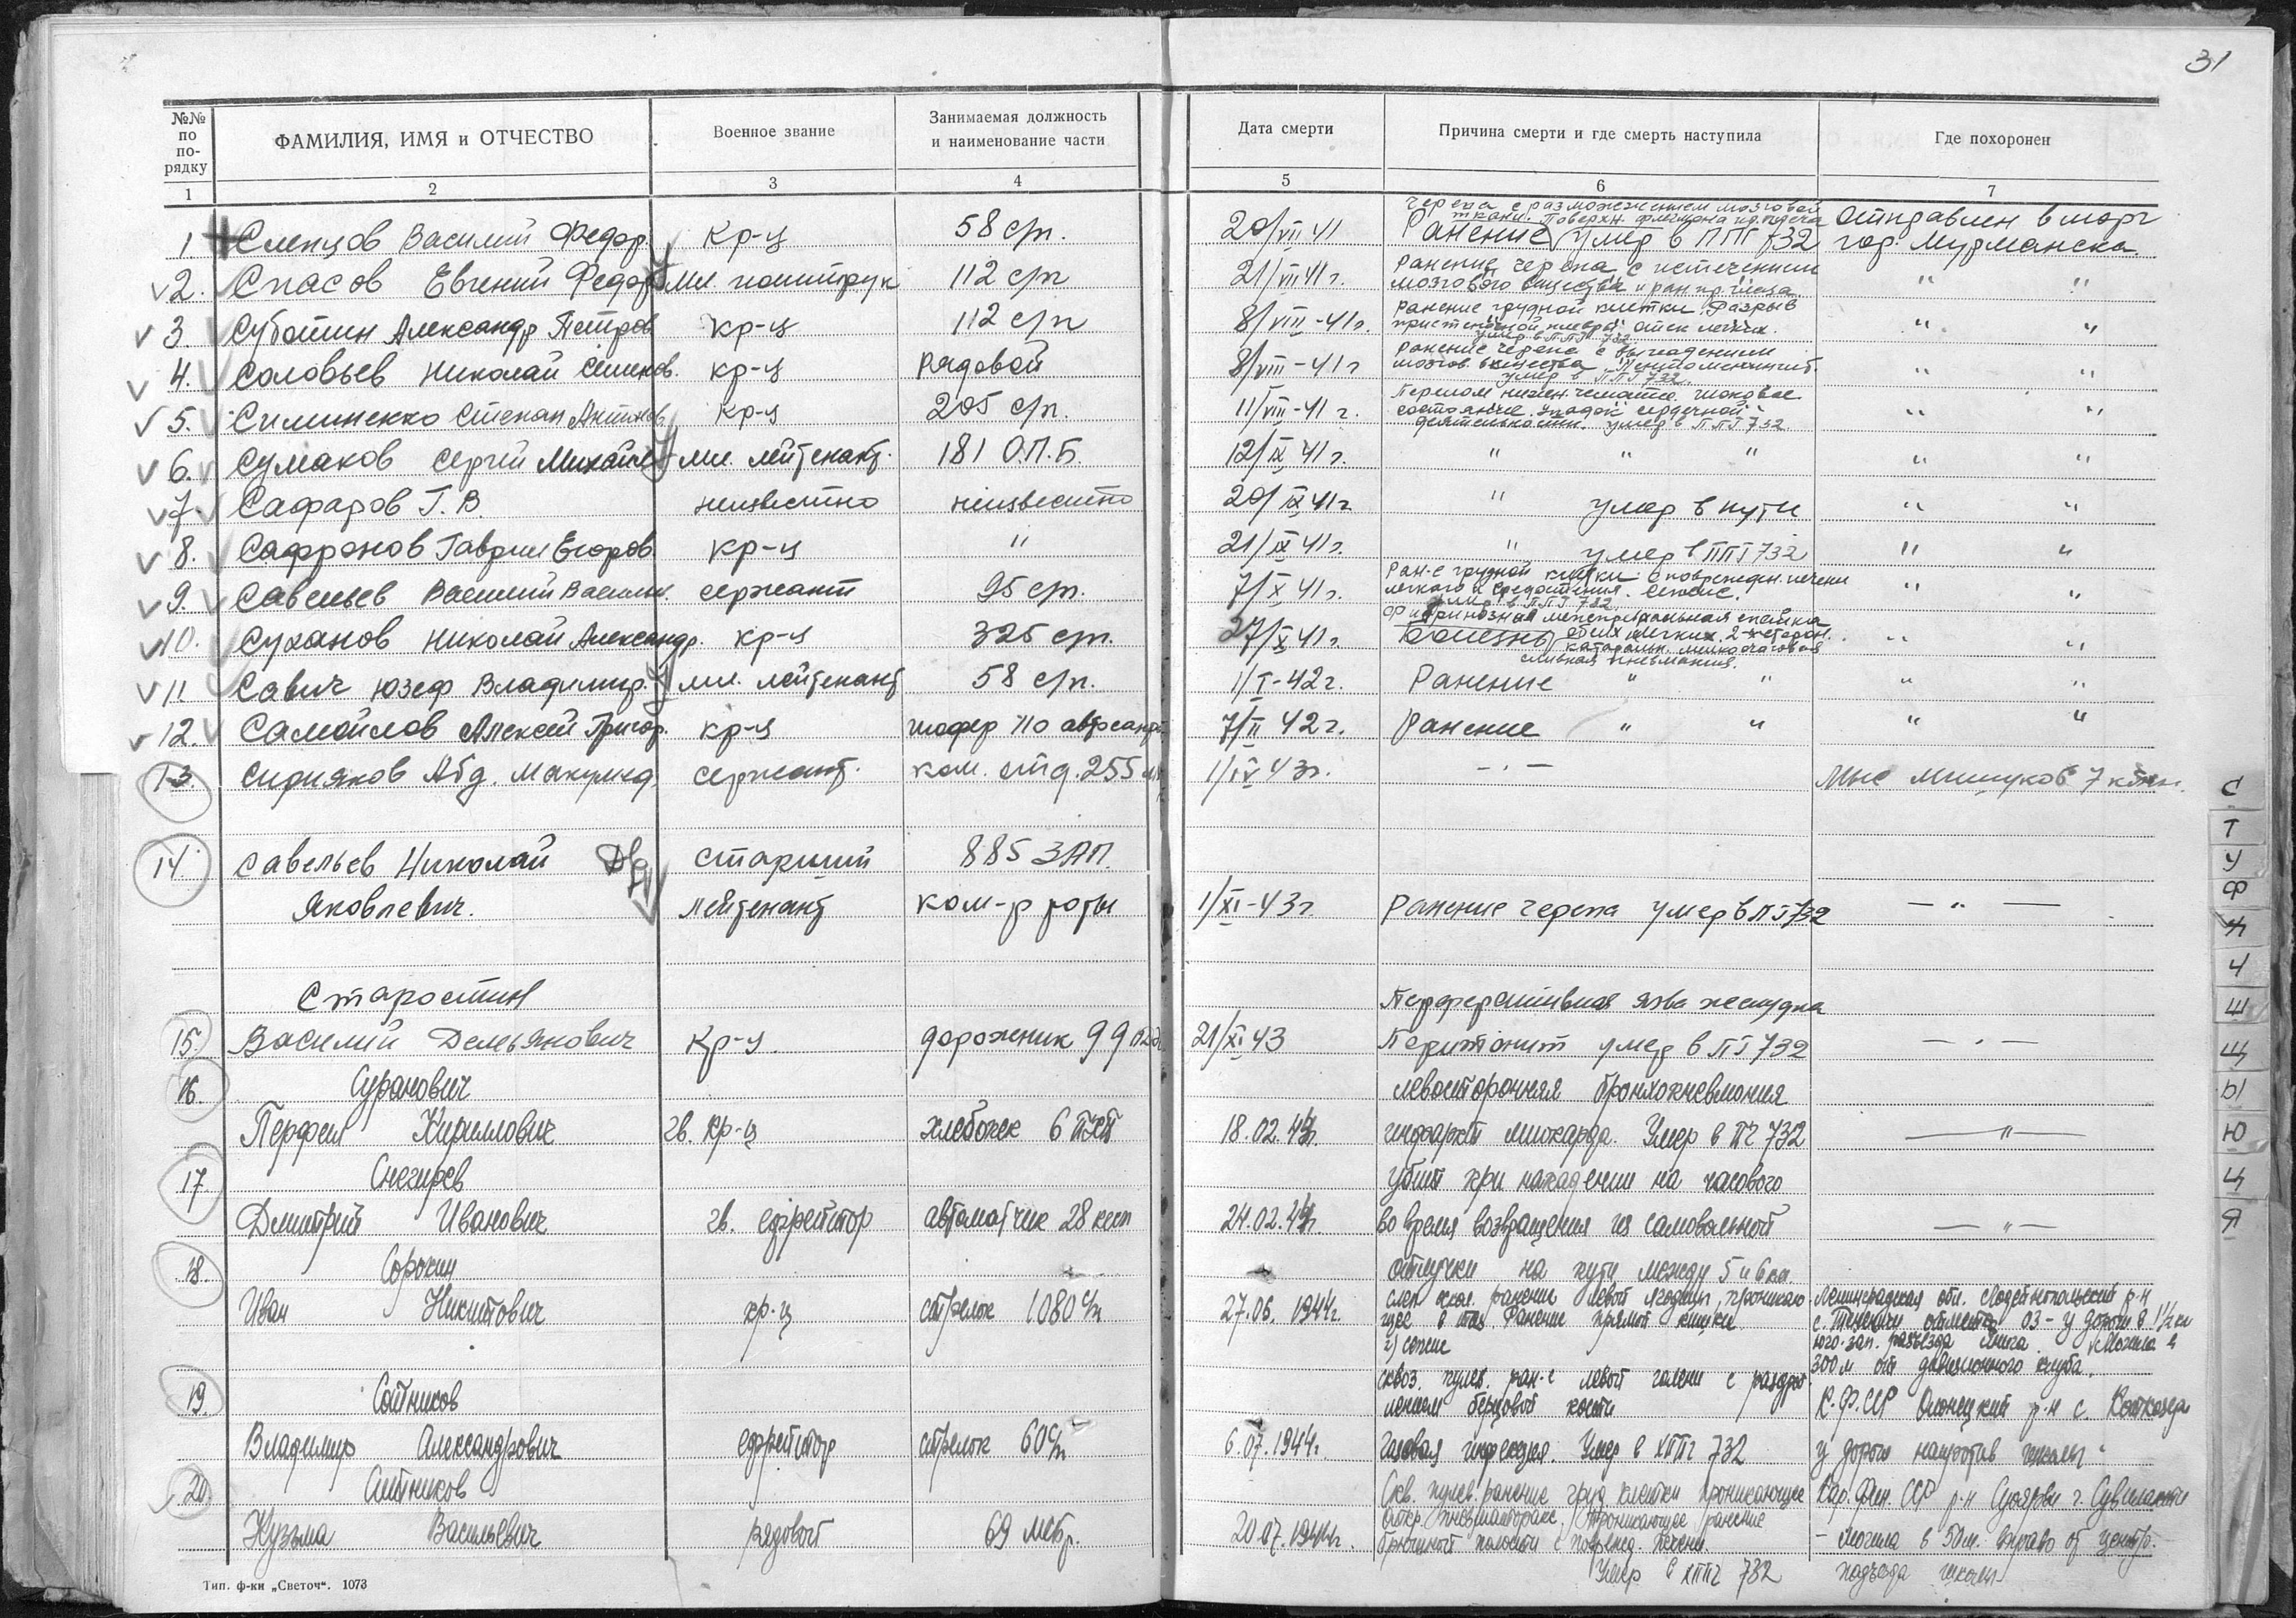 31
№№ по по-рядку
ФАМИЛИЯ, ИМЯ и ОТЧЕСТВО
Военное звание
Занимаемая должность и наименование части
Дата смерти
Причина смерти и где смерть наступила
Где похоронен
1 2 3 4 5 6 7
черепа с размозжением мозговой
ткани. Поверхн. флегмона пр. плеча
1 Слепцов Василий Федор. кр-ц 58 сп. 20/VII 41 Ранение умер в ППГ 732 отправлен в морг гор. Мурманска
Ранение черепа с истечением
2. Спасов Евгений Федор мл. политрук 112 сп 21/VII 41 г. мозгового вещества и ран. пр. " "
Ранение грудной клетки. Разрыв
3. Суботин Александр Петров кр-ц 112 сп 8/VIII-41 г. пристеночной плевры " "
умер в ППГ 732
Ранение черепа с выпадением
4. Соловьев Николай Семенов. кр-ц рядовой 8/VIII-41 г мозгов. вещества. " "
умер в ППГ 732.
Перелом нижн. челюсти. шоковое
5. Симиненко Степан Антонов кр-ц 205 сп. 11/VIII-41 г. состояние. упадок сердечной " "
деятельности. умер в ППГ 732
6. Сумаков Сергей Михайл мл. лейтенант. 181 О.П.Б. 12/IX 41 г. " " " " "
7. Сафаров Г. В. неизвестно неизвестно 20/IX 41 г. " умер в пути " "
8. Сафронов Гаврил Егоров кр-ц " 21/IX 41 г. " умер в ППГ 732 " "
Ран-е грудной клетки с поврежден. печени
9. Савельев Василий Васильи. сержант 95 сп. 7/X 41 г. легкого и средостения. Сепсис. " "
умер в ППГ 732
10. Суханов Николай Александр. кр-ц 325 сп. 27/X 41 г. Болезнь обеих легких. 2-хсторон. " "
катаральн. мелкоочаговая
сливная пневмония.
11 Савич Юзеф Владимир. мл. лейтенант 58 сп. 1/I-42 г. Ранение " " " "
12. Самойлов Алексей Григор. кр-ц шофер 110 7/II 42 г. Ранение " " " "
13. Сидияков Абд. сержант. ком. отд. 255 1/IV 43 г. — . — Мыс Мишуков 7 клм.
14. Савельев Николай старший 885 ЗАП.
Яковлевич. лейтенант ком-р роты 1/XI-43 г. Ранение черепа умер в ПГ 732 — " —
Старостин Перферативная язва желудка
15. Василий Демьянович Кр-ц. дорожник 99 21/XI 43 Перитонит умер в ПГ 732 — " —
16. Суранович левосторонняя бронхопневмония
Перфел Кириллович гв. кр-ц хлебопек 6 ПХП 18.02.44г. инфаркт миокарда. Умер в ПГ 732 — " —
17. Снегирев убит при нападении на часового
Дмитрий Иванович гв. ефрейтор автоматчик 28 24.02.44г. во время возвращения из самовольной — " —
18. Сорокин отлучки на пути между 5 и 6 км.
слеп. оскол. ранение левой ягодицы, проникаю- Ленинградская обл. Лодейнопольский р-н
Иван Никитович кр-ц стрелок 1080 сп 27.06.1944г. щее в таз. Ранение прямой кишки
2) сепсис юго-зап. разъезда Янега. Могила в
300 м от дивизионного клуба.
сквоз. пулев. ран-е левой голени с раздроб-
19. Сотников лением берцовой кости К.Ф.ССР Олонецкий р-н с. Коткозера
Владимир Александрович ефрейтор стрелок 60 сп 6.07.1944г. Газовая инфекция. Умер в ХППГ 732 у дороги напротив школы
20. Ситников Скв. пулев. ранение груд клетки проникающее Кар. Фин. ССР р-н Суоярви
Откр. пневматоракс. Проникающее ранение
Кузьма Васильевич рядовой 69 мсбр. 20.07.1944г. брюшной полости с поврежд. печени. – могила в 50 м. вправо от центр.
Умер в ХППГ 732 подъезда школы
С
Т
У
Ф
Х
Ч
Ш
Щ
Ы
Ю
Ц
Я
Тип. ф-ки „Светоч". 1073